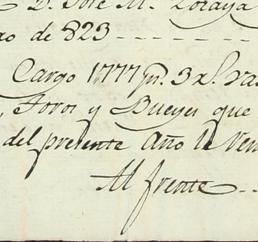 D. José M. Loraya
de 823
Cargo 17777 ps. 3 rl.
Toros y Bueyes que
del presente Año le Ven
Al frente